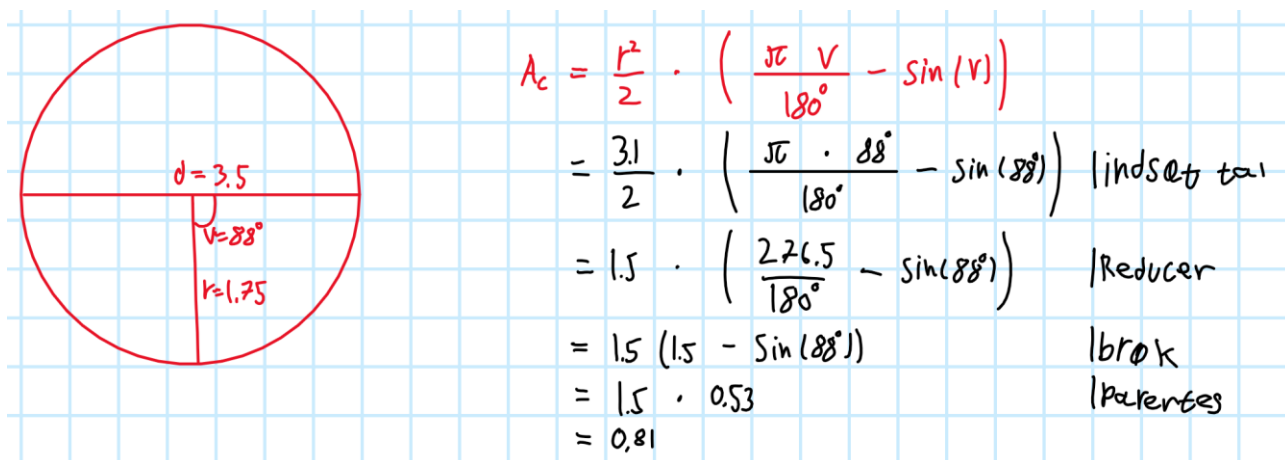 d = 3.5
v=88°
r=1.75
A_c = r²/2 · (π v/180° - sin(v))
= 3.1/2 · (π · 88°/180° - sin(88°)) |indsæt tal
= 1.5 · (276.5/180° - sin(88°)) |Reducer
= 1.5 (1.5 - sin(88°)) |brøk
= 1.5 · 0.53 |Parentes
= 0,81